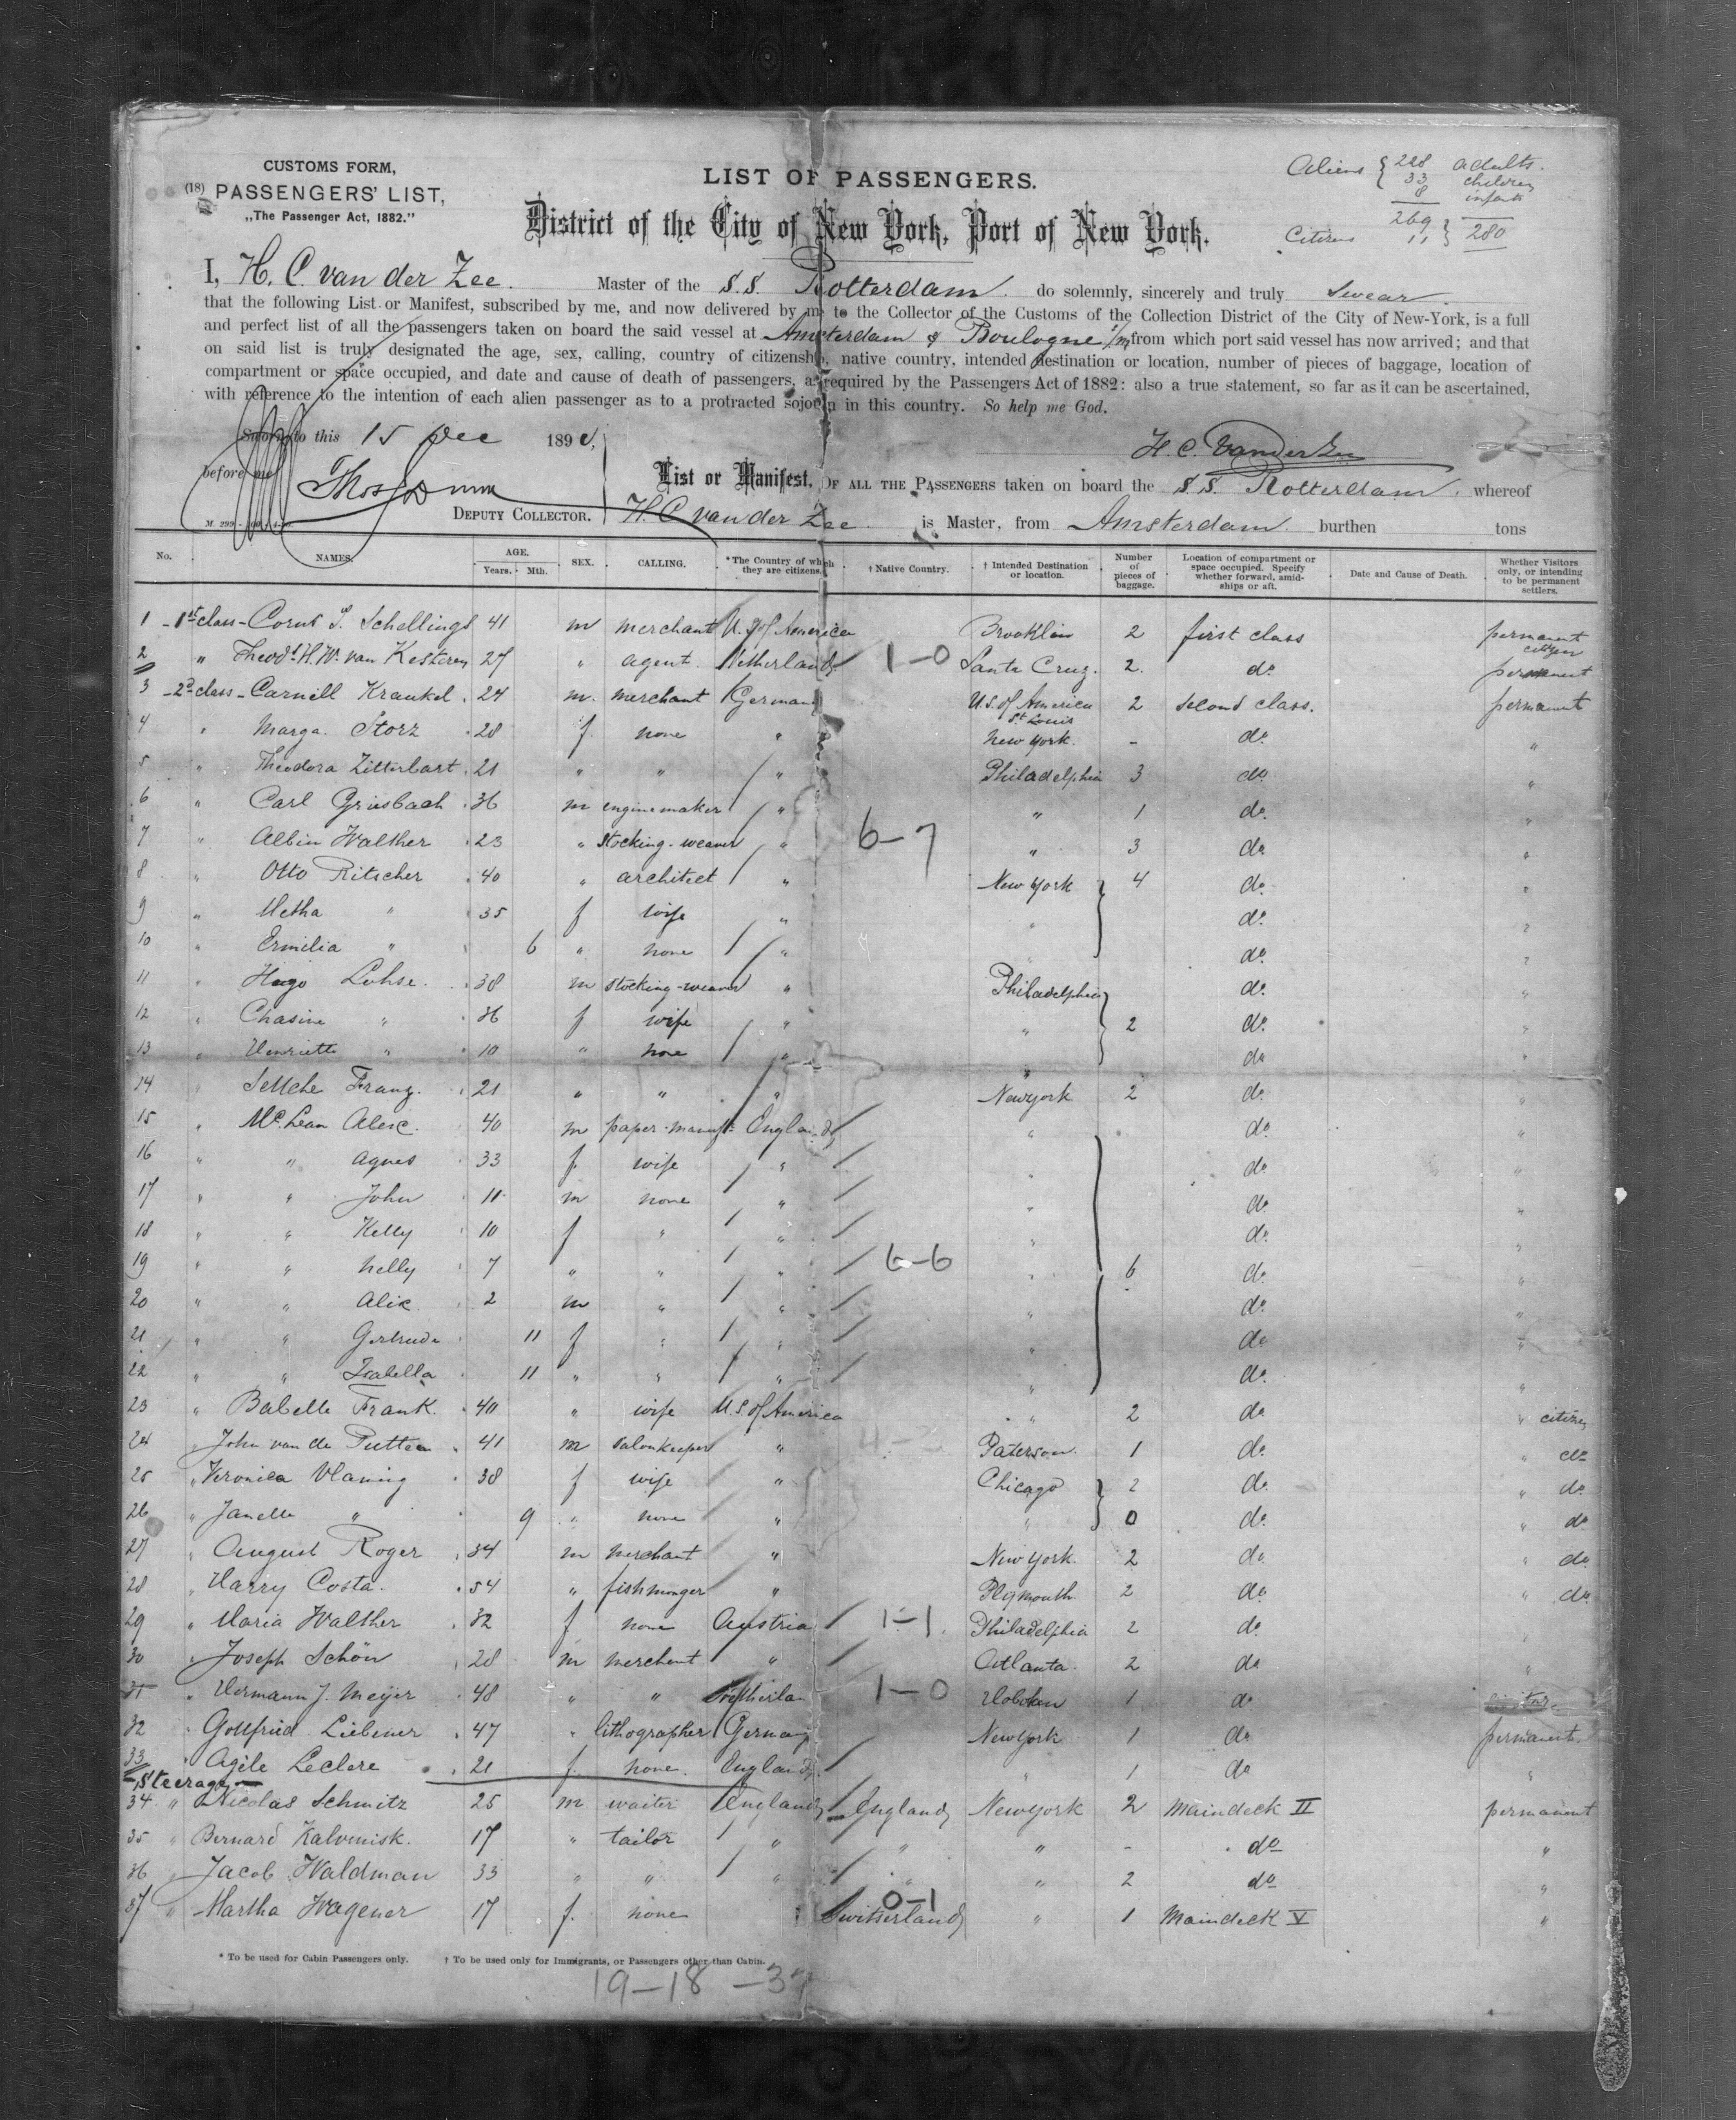 CUSTOMS FORM,
(18) PASSENGERS' LIST,
„The Passenger Act, 1882."
LIST OF PASSENGERS.
District of the City of New York, Port of New York.
Aliens { 228 adults.
33 children
8 infants
269
Citizens 11 } 280
I, H. C. van der Zee. Master of the S.S. Rotterdam. do solemnly, sincerely and truly swear
that the following List or Manifest, subscribed by me, and now delivered by me to the Collector of the Customs of the Collection District of the City of New-York, is a full
and perfect list of all the passengers taken on board the said vessel at Amsterdam & Boulogne s/m from which port said vessel has now arrived; and that
on said list is truly designated the age, sex, calling, country of citizenship, native country, intended destination or location, number of pieces of baggage, location of
compartment or space occupied, and date and cause of death of passengers, as required by the Passengers Act of 1882: also a true statement, so far as it can be ascertained,
with reference to the intention of each alien passenger as to a protracted sojourn in this country. So help me God.
Sworn to this 15 Dec 189
before me
H. C. van der Zee
DEPUTY COLLECTOR.
List or Manifest, OF ALL THE PASSENGERS taken on board the S.S. Rotterdam, whereof
H. C. van der Zee is Master, from Amsterdam burthen tons
No. NAMES. AGE. Years. Mth. SEX. CALLING. * The Country of which they are citizens. † Native Country. † Intended Destination or location. Number of pieces of baggage. Location of compartment or space occupied. Specify whether forward, amidships or aft. Date and Cause of Death. Whether Visitors only, or intending to be permanent settlers.
1 - 1st class - Corns S. Schellings 41 m merchant U.S. of America Brooklin 2 first class permanent citizen
2 " Theodr. H. W. van Kesteren 27 " agent Netherlands 1-0 Santa Cruz. 2. do. permanent
3 - 2d class - Carnill Kraukel 24 m. merchant Germany U.S. of America St. Louis 2 second class. permanent
4 " Marga. Storz 28 f none " New York. - do. "
5 " Theodora Zitterbart 21 " " " Philadelphia 3 do. "
6 " Carl Griesbach 36 m enginemaker " " 1 do. "
7 " Albin Walther 23 " stocking-weaver " 6-7 " 3 do. "
8 " Otto Ritscher 40 " architect " New York 4 do. "
9 " Metha " 35 f wife " " do. "
10 " Ermilia " 6 " none " " do. "
11 " Hugo Lohse. 38 m stocking-weaver " Philadelphia do. "
12 " Chasine " 36 f wife " " 2 do. "
13 " Henriette " 10 " none " " do. "
14 " Franz. 21 " " " New york 2 do. "
15 " McLean Alexc. 40 m paper-manuft. England " do. "
16 " " Agnes 33 f. wife " " do. "
17 " " John 11 m none " " do. "
18 " " Kelly 10 f " " " do. "
19 " " Nelly 7 " " " 6-6 " 6 do. "
20 " " Alix 2 m " " " do. "
21 " " Gertrude 11 f " " " do. "
22 " " Isabella 11 " " " " do. "
23 " Babelle Frank. 40 " wife U.S. of America " 2 do. " citizen
24 " John van de Putten 41 m salonkeeper " Paterson. 1 do. " do.
25 " Veronica Vlaming 38 f wife " Chicago 2 do. " do.
26 " Janette " 9 " none " " 0 do. " do.
27 " August Roger 34 m merchant " New York. 2 do. " do.
28 " Harry Costa. 54 " fishmonger " Plymouth 2 do. " do.
29 " Maria Walther 32 f none Austria 1-1. Philadelphia 2 do. "
30 " Joseph Schön 28 m merchant " Atlanta. 2 do. "
31 " Hermann J. Meijer 48 " " 1-0 Hoboken 1 do.
32 " Gottfried Liebener 47 " lithographer Germany New York 1 do. permanent.
33 " Agile Leclere 21 f. none. England " 1 do. "
- Steerage -
34 " Nicolas Schmitz 25 m waiter England England New York 2 Maindeck II permanent
35 " Bernard Kalvinisk. 17 " tailor " " " - do. "
36 " Jacob Waldman 33 " " " " " 2 do. "
37 " Martha Wagener 17 f. none 0-1 Switserland " 1 Maindeck V "
* To be used for Cabin Passengers only. † To be used only for Immigrants, or Passengers other than Cabin.
19-18-37